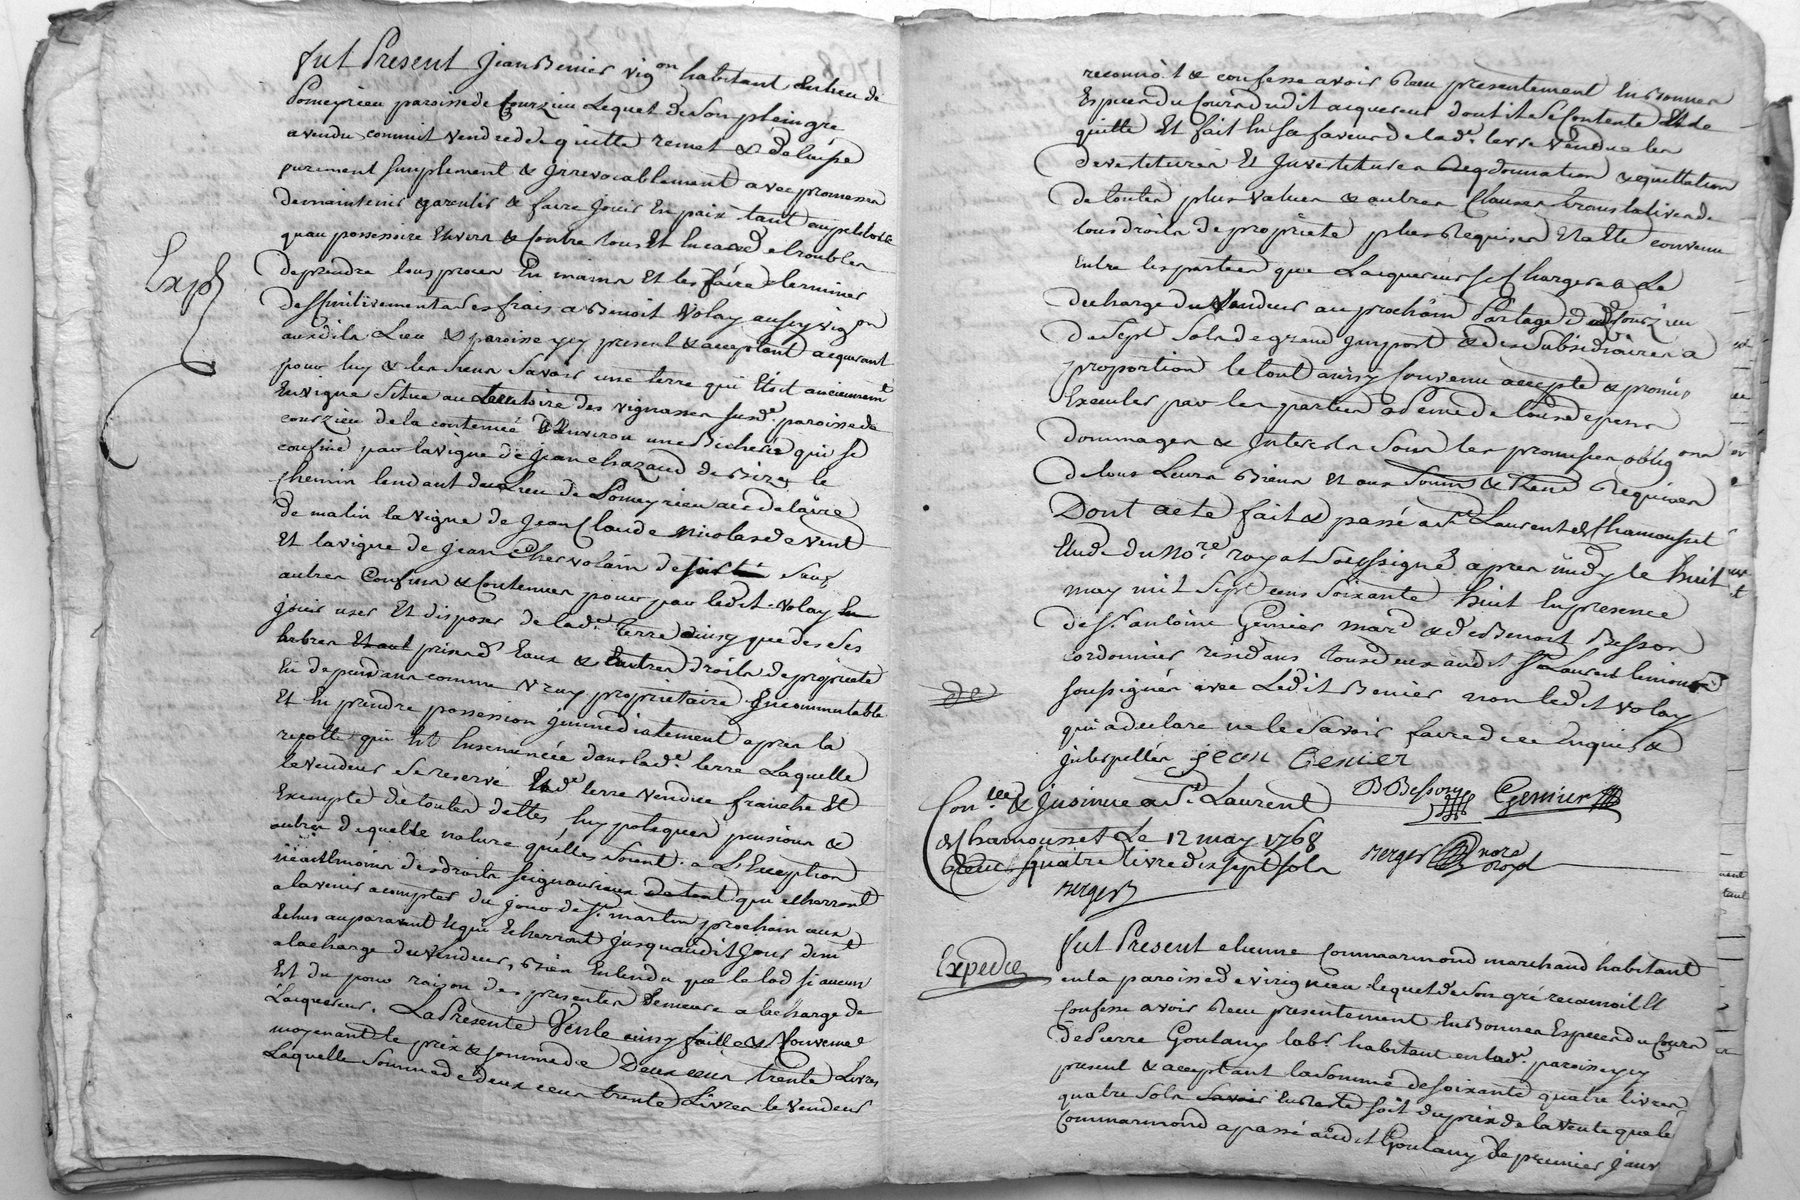 Expé
fut Present Jean Benier vigon habitant du lieu de
Pomeyrieu paroisse de Courzieu Lequel de Son plein gré
a vendu commit vend cedde quitte remet & delaisse
purement simplement & Irrevocablement avec promesses
de maintenir garentir & faire Jouir En paix tant au petitoire
quau possessoire Envers & Contre tous Et En cas de troubles
de prendre tous proces En mains Et les faire terminer
deffinitivement a Ses frais a Benoit Volay aussy vigon
audit Lieu & paroisse icy present & acceptant acquerant
pour luy & les siens Savoir une terre qui Etoit anciennemt
En vigne Situe au Territoire des vignasses susde. paroisse de
courzieu de la contenue d'Environ une Bicherée qui se
confine par la vigne de Jean chazaud de Bize le
Chemin tendant du Lieu de Pomeyrieu de
de matin la vigne de Jean Claude Nicolas de Vent
Et la vigne de Jean Chervolain de soir Sauf
autres Confins & Contenues pour par ledit Volay
jouir user Et disposer de lade. terre ainsy que de ses
arbres prises d'Eaux & autres droits de propriete
En dependans comme vray proprietaire Incommutable
Et En prendre possession Immediatement apres la
recolte qui Est Ensemencée dans lade. terre Laquelle
le vendeur Se reserve lade terre vendue franche Et
Exempte de toutes dettes hypoteques pensions &
autres de quelle nature qu'elles Soient a L'Exception
neantmoins des droits seigneuriaux qui echerront
a lavenir a compter du Jour de St. martin prochain ceux
Echus auparavant Et qui Echerront Jusquaudit Jour dem.t
a la charge du Vendeur, Bien Entendu que le lod si aucun
Est du pour raison des presentes demeure a la charge de
L'acquereur. La Presente Vente ainsy faitte & Convenue
moyenant le prix & somme de Deux cens trente Livres
Laquelle Somme de deux cens trente Livres le vendeur
reconnoit & confesse avoir Receu presentement En Bonnes
Especes du Cours dudit acquereur dont il Se Contente Et le
quitte Et fait En sa faveur de lade. terre Vendue les
devestitures Et Investitures Reqdonnation & quittation
de toutes plus values & autres Clauses translatives de
tous droits de proprieté plus Requises Et a Eté convenu
Entre les parties que L'acquereur Se Chargera & Le
dechargera du Vendeur au prochain Partage de Courzieu
de Sept Sols de grand Import & des Subsidiaires a
proportion le tout ainsy Convenu accepté & promis
Executer par les parties a peine de tous depens
dommages & Interets Sous les promisses obligons
de tous Leurs Biens Et aux Soum & Renc Requises
Dont acte fait & passé a St. Laurent de Chamousset
Etude du Nore. royal Soussigné apres midy le huit
may mil Sept cens Soixante huit En presence
de Sr. antoine Genier mard. & de Benoit Besson
cordonnier residans tous deux audit St Laurent temoins
soussignés avec Ledit Benier non ledit Volay
qui a declaré ne le Savoir faire de ce Enquis &
Interpellés Jean Benier
BBesson Genier
Con.lée & Insinué a St. Laurent
de Chamousset Le 12 may 1768
Receu quatre livre dix sept sols
Merger nore Royal
Merger
Expedié
fut Present etienne Commarmond marchand habitant
en la paroisse de virigneux lequel de Son gré reconnoit Et
Confesse avoir Receu presentement En Bonnes Especes du Cours
de Pierre Goutany labr. habitant en lade. paroisse icy
present & acceptant la Somme de Soixante quatre livres
quatre Sols Savoir En Reste Soit du prix de la Vente que le
Commarmond a passé audit Goutany le premier Janv